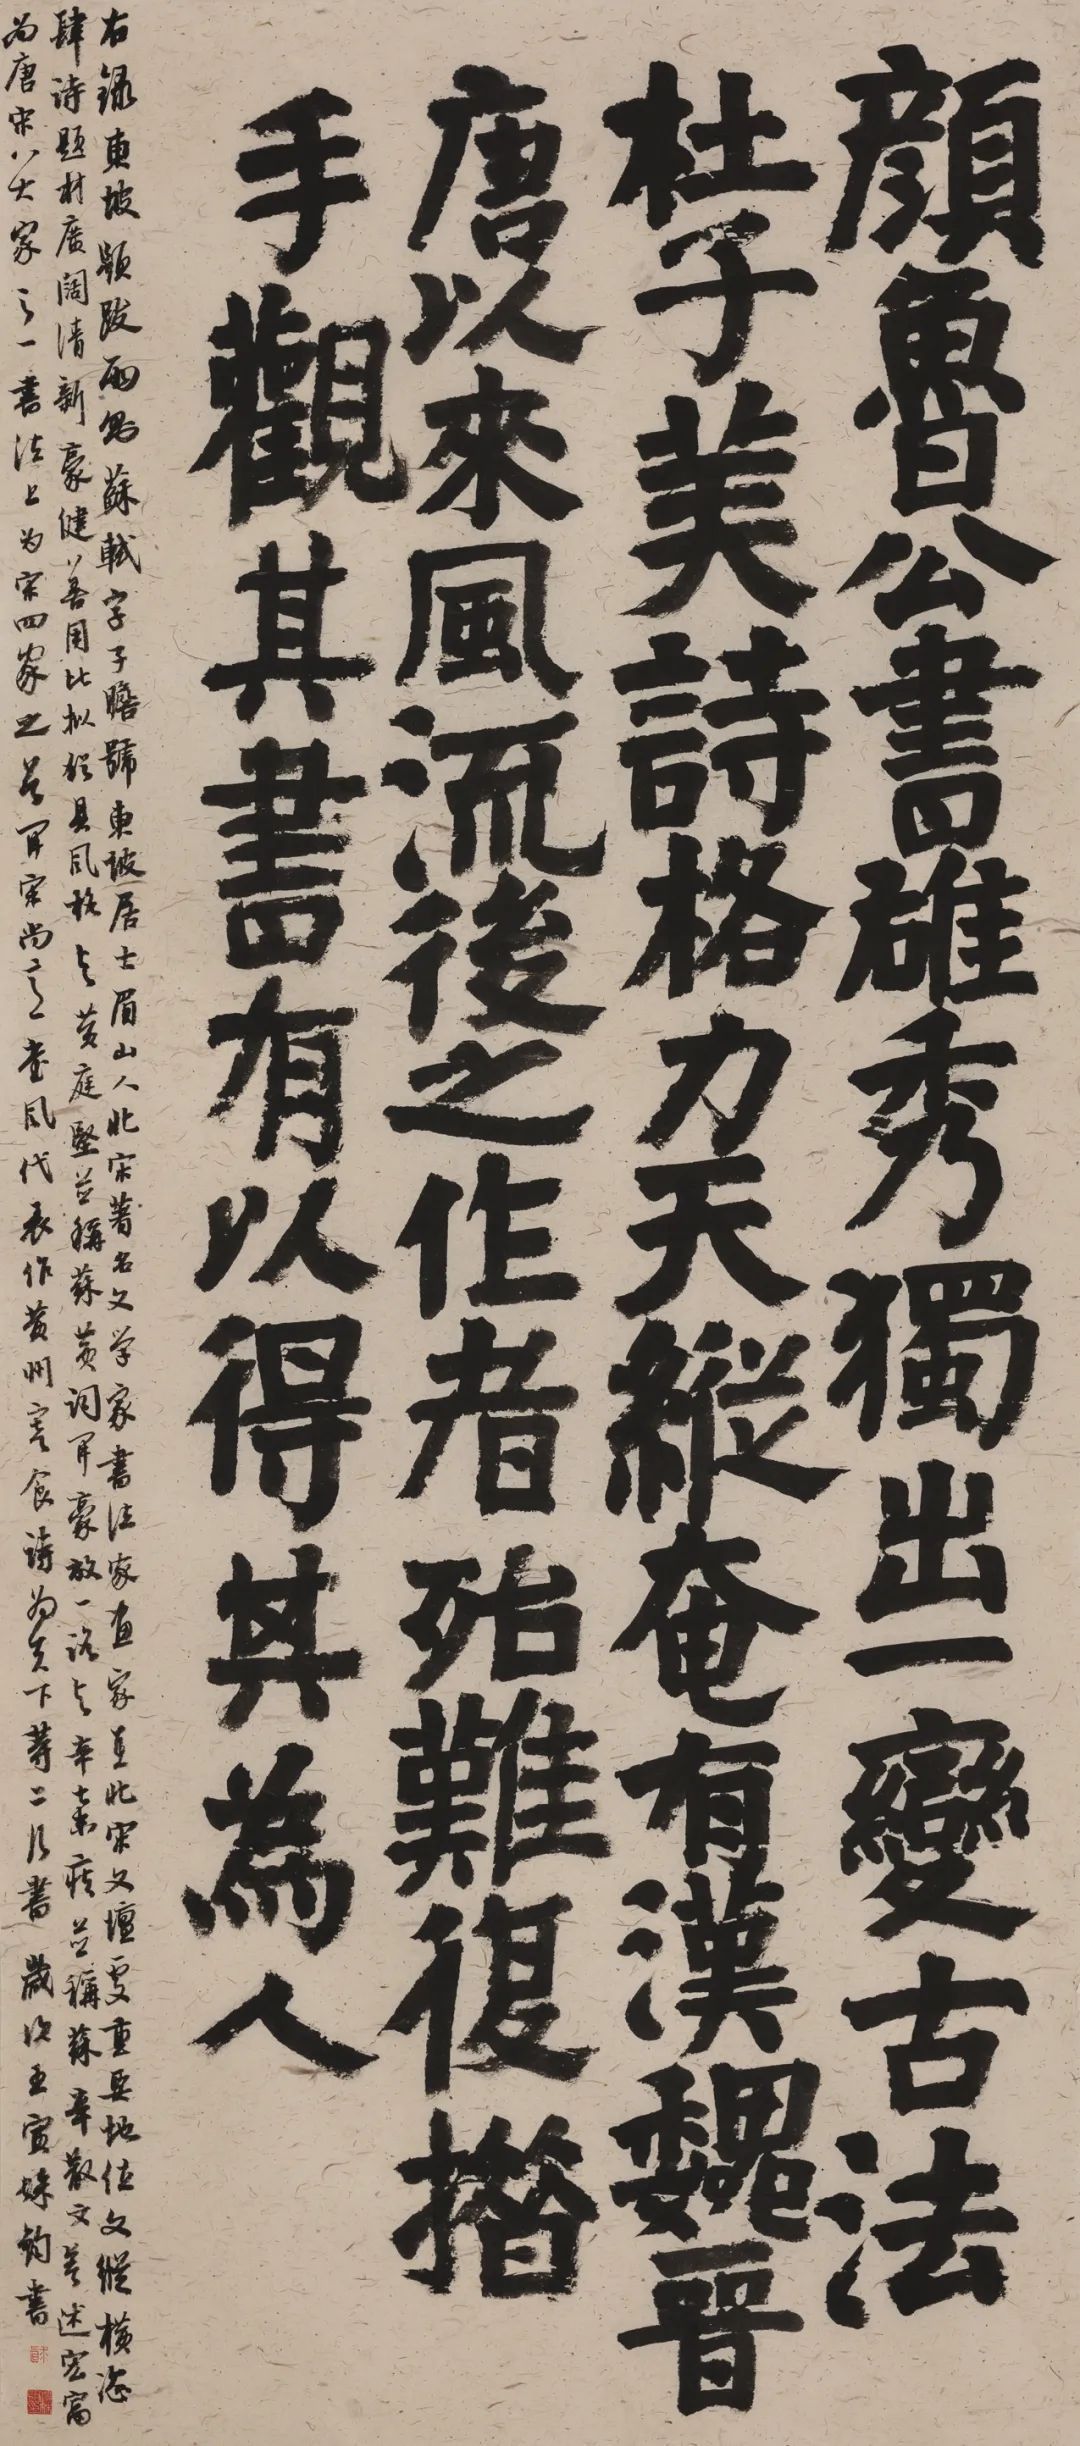 顏魯公書雄秀獨出一變古法
杜子美詩格力天縱奄有漢魏晉
唐以來風流後之作者殆難復措
手觀其書有以得其為人
右錄東坡題跋兩則蘇軾字子瞻號東坡居士眉山人北宋著名文学家書法家画家在北宋文壇享重要地位文縱橫恣
肆诗题材廣阔清新豪健善用比拟独具风格与黄庭堅並稱蘇黄词开豪放一派与辛棄疾並稱蘇辛散文著述宏富
为唐宋八大家之一書法上为宋四家之首开宋尚意書风代表作黄州寒食诗为天下第二行書 歲次壬寅 钧書